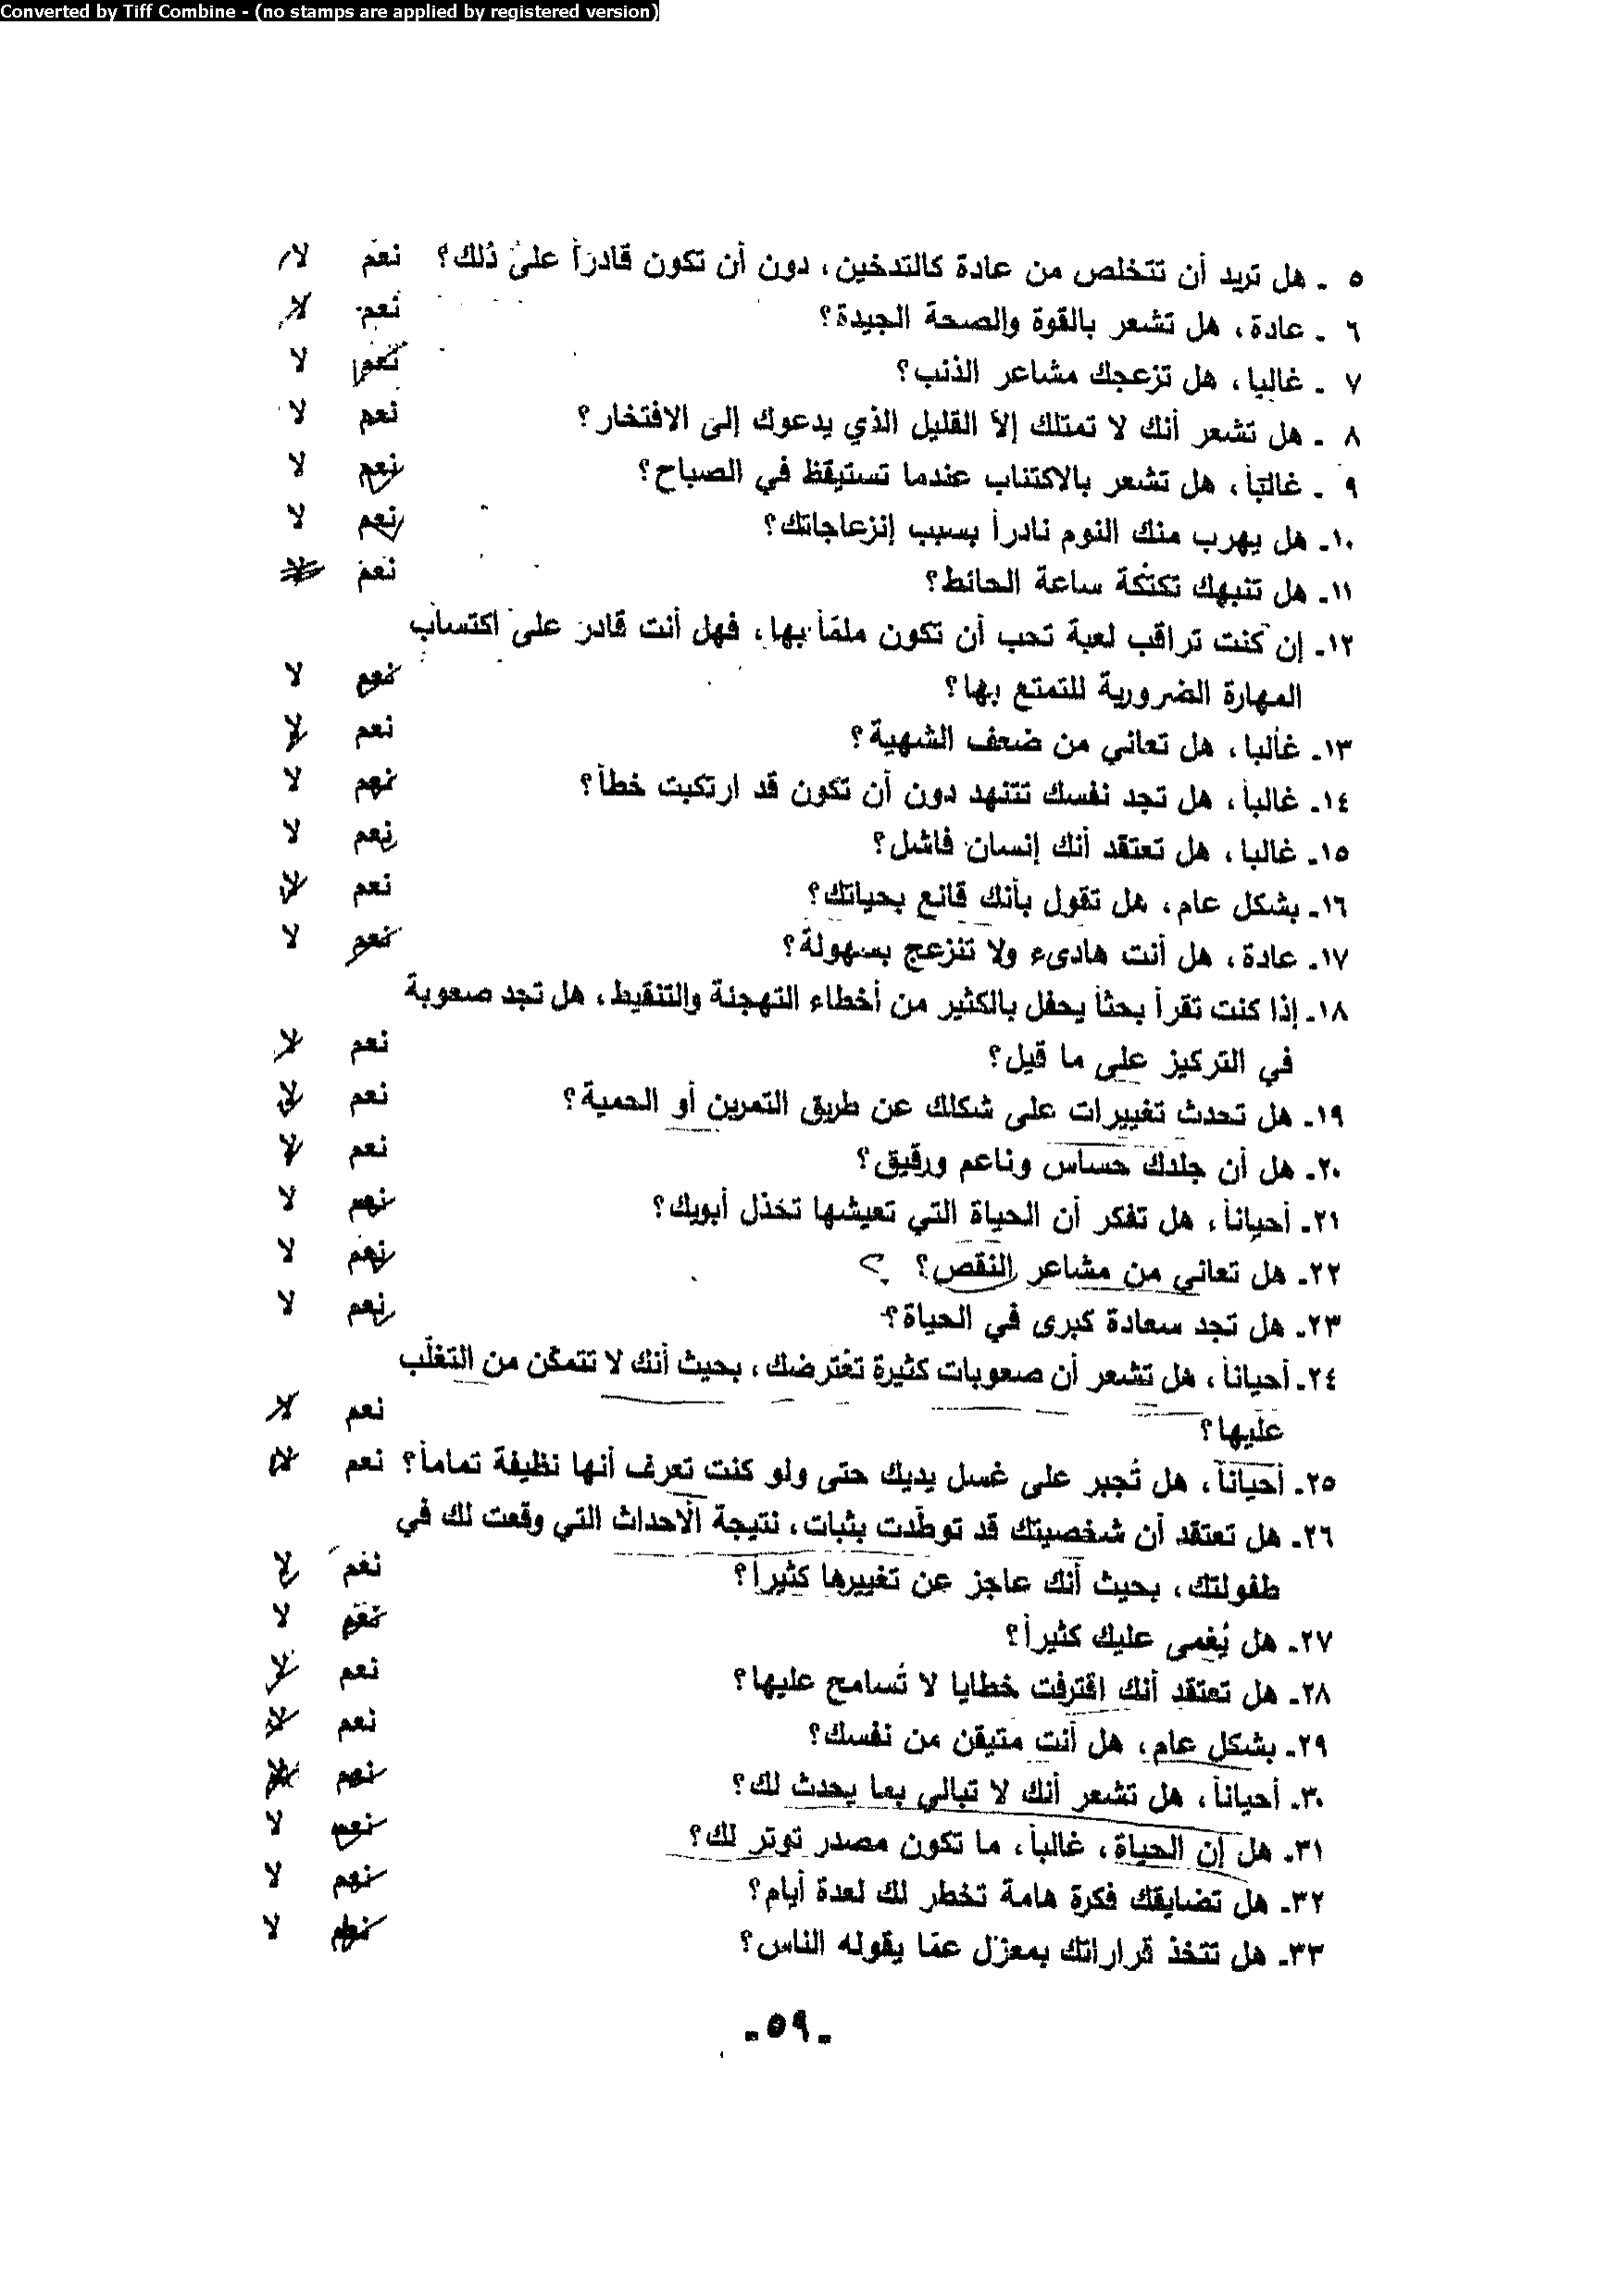 Converted by Tiff Combine - (no stamps are applied by registered version)
٥ ـ هل تريد أن تتخلص من عادة كالتدخين، دون أن تكون قادراً على ذلك؟ نعم لا
٦ ـ عادة، هل تشعر بالقوة والصحة الجيدة؟ نعم لا
٧ ـ غالبا، هل تزعجك مشاعر الذنب؟ نعم لا
٨ ـ هل تشعر أنك لا تمتلك إلا القليل الذي يدعوك إلى الافتخار؟ نعم لا
٩ ـ غالباً، هل تشعر بالاكتئاب عندما تستيقظ في الصباح؟ نعم لا
١٠ـ هل يهرب منك النوم نادراً بسبب إنزعاجاتك؟ نعم لا
١١ـ هل تنبهك تكتكة ساعة الحائط؟ نعم لا
١٢ـ إن كنت تراقب لعبة تحب أن تكون ملمّاً بها، فهل أنت قادر على اكتساب
المهارة الضرورية للتمتع بها؟ نعم لا
١٣ـ غالبا، هل تعاني من ضعف الشهية؟ نعم لا
١٤ـ غالباً، هل تجد نفسك تتنهد دون أن تكون قد ارتكبت خطأ؟ نعم لا
١٥ـ غالبا، هل تعتقد أنك إنسان فاشل؟ نعم لا
١٦ـ بشكل عام، هل تقول بأنك قانع بحياتك؟ نعم لا
١٧ـ عادة، هل أنت هادىء ولا تنزعج بسهولة؟ نعم لا
١٨ـ إذا كنت تقرأ بحثاً يحفل بالكثير من أخطاء التهجئة والتنقيط، هل تجد صعوبة
في التركيز على ما قيل؟ نعم لا
١٩ـ هل تحدث تغييرات على شكلك عن طريق التمرين أو الحمية؟ نعم لا
٢٠ـ هل أن جلدك حساس وناعم ورقيق؟ نعم لا
٢١ـ أحياناً، هل تفكر أن الحياة التي تعيشها تخذل أبويك؟ نعم لا
٢٢ـ هل تعاني من مشاعر النقص؟ نعم لا
٢٣ـ هل تجد سعادة كبرى في الحياة؟ نعم لا
٢٤ـ أحياناً، هل تشعر أن صعوبات كثيرة تعترضك، بحيث أنك لا تتمكّن من التغلّب
عليها؟ نعم لا
٢٥ـ أحياناً، هل تُجبر على غسل يديك حتى ولو كنت تعرف أنها نظيفة تماماً؟ نعم لا
٢٦ـ هل تعتقد أن شخصيتك قد توطّدت بثبات، نتيجة الأحداث التي وقعت لك في
طفولتك، بحيث أنك عاجز عن تغييرها كثيراً؟ نعم لا
٢٧ـ هل يُغمى عليك كثيراً؟ نعم لا
٢٨ـ هل تعتقد أنك اقترفت خطايا لا تُسامح عليها؟ نعم لا
٢٩ـ بشكل عام، هل أنت متيقن من نفسك؟ نعم لا
٣٠ـ أحياناً، هل تشعر أنك لا تبالي بما يحدث لك؟ نعم لا
٣١ـ هل إن الحياة، غالباً، ما تكون مصدر توتر لك؟ نعم لا
٣٢ـ هل تضايقك فكرة هامة تخطر لك لعدة أيام؟ نعم لا
٣٣ـ هل تتخذ قراراتك بمعزل عمّا يقوله الناس؟ نعم لا
ـ ٥٩ ـ